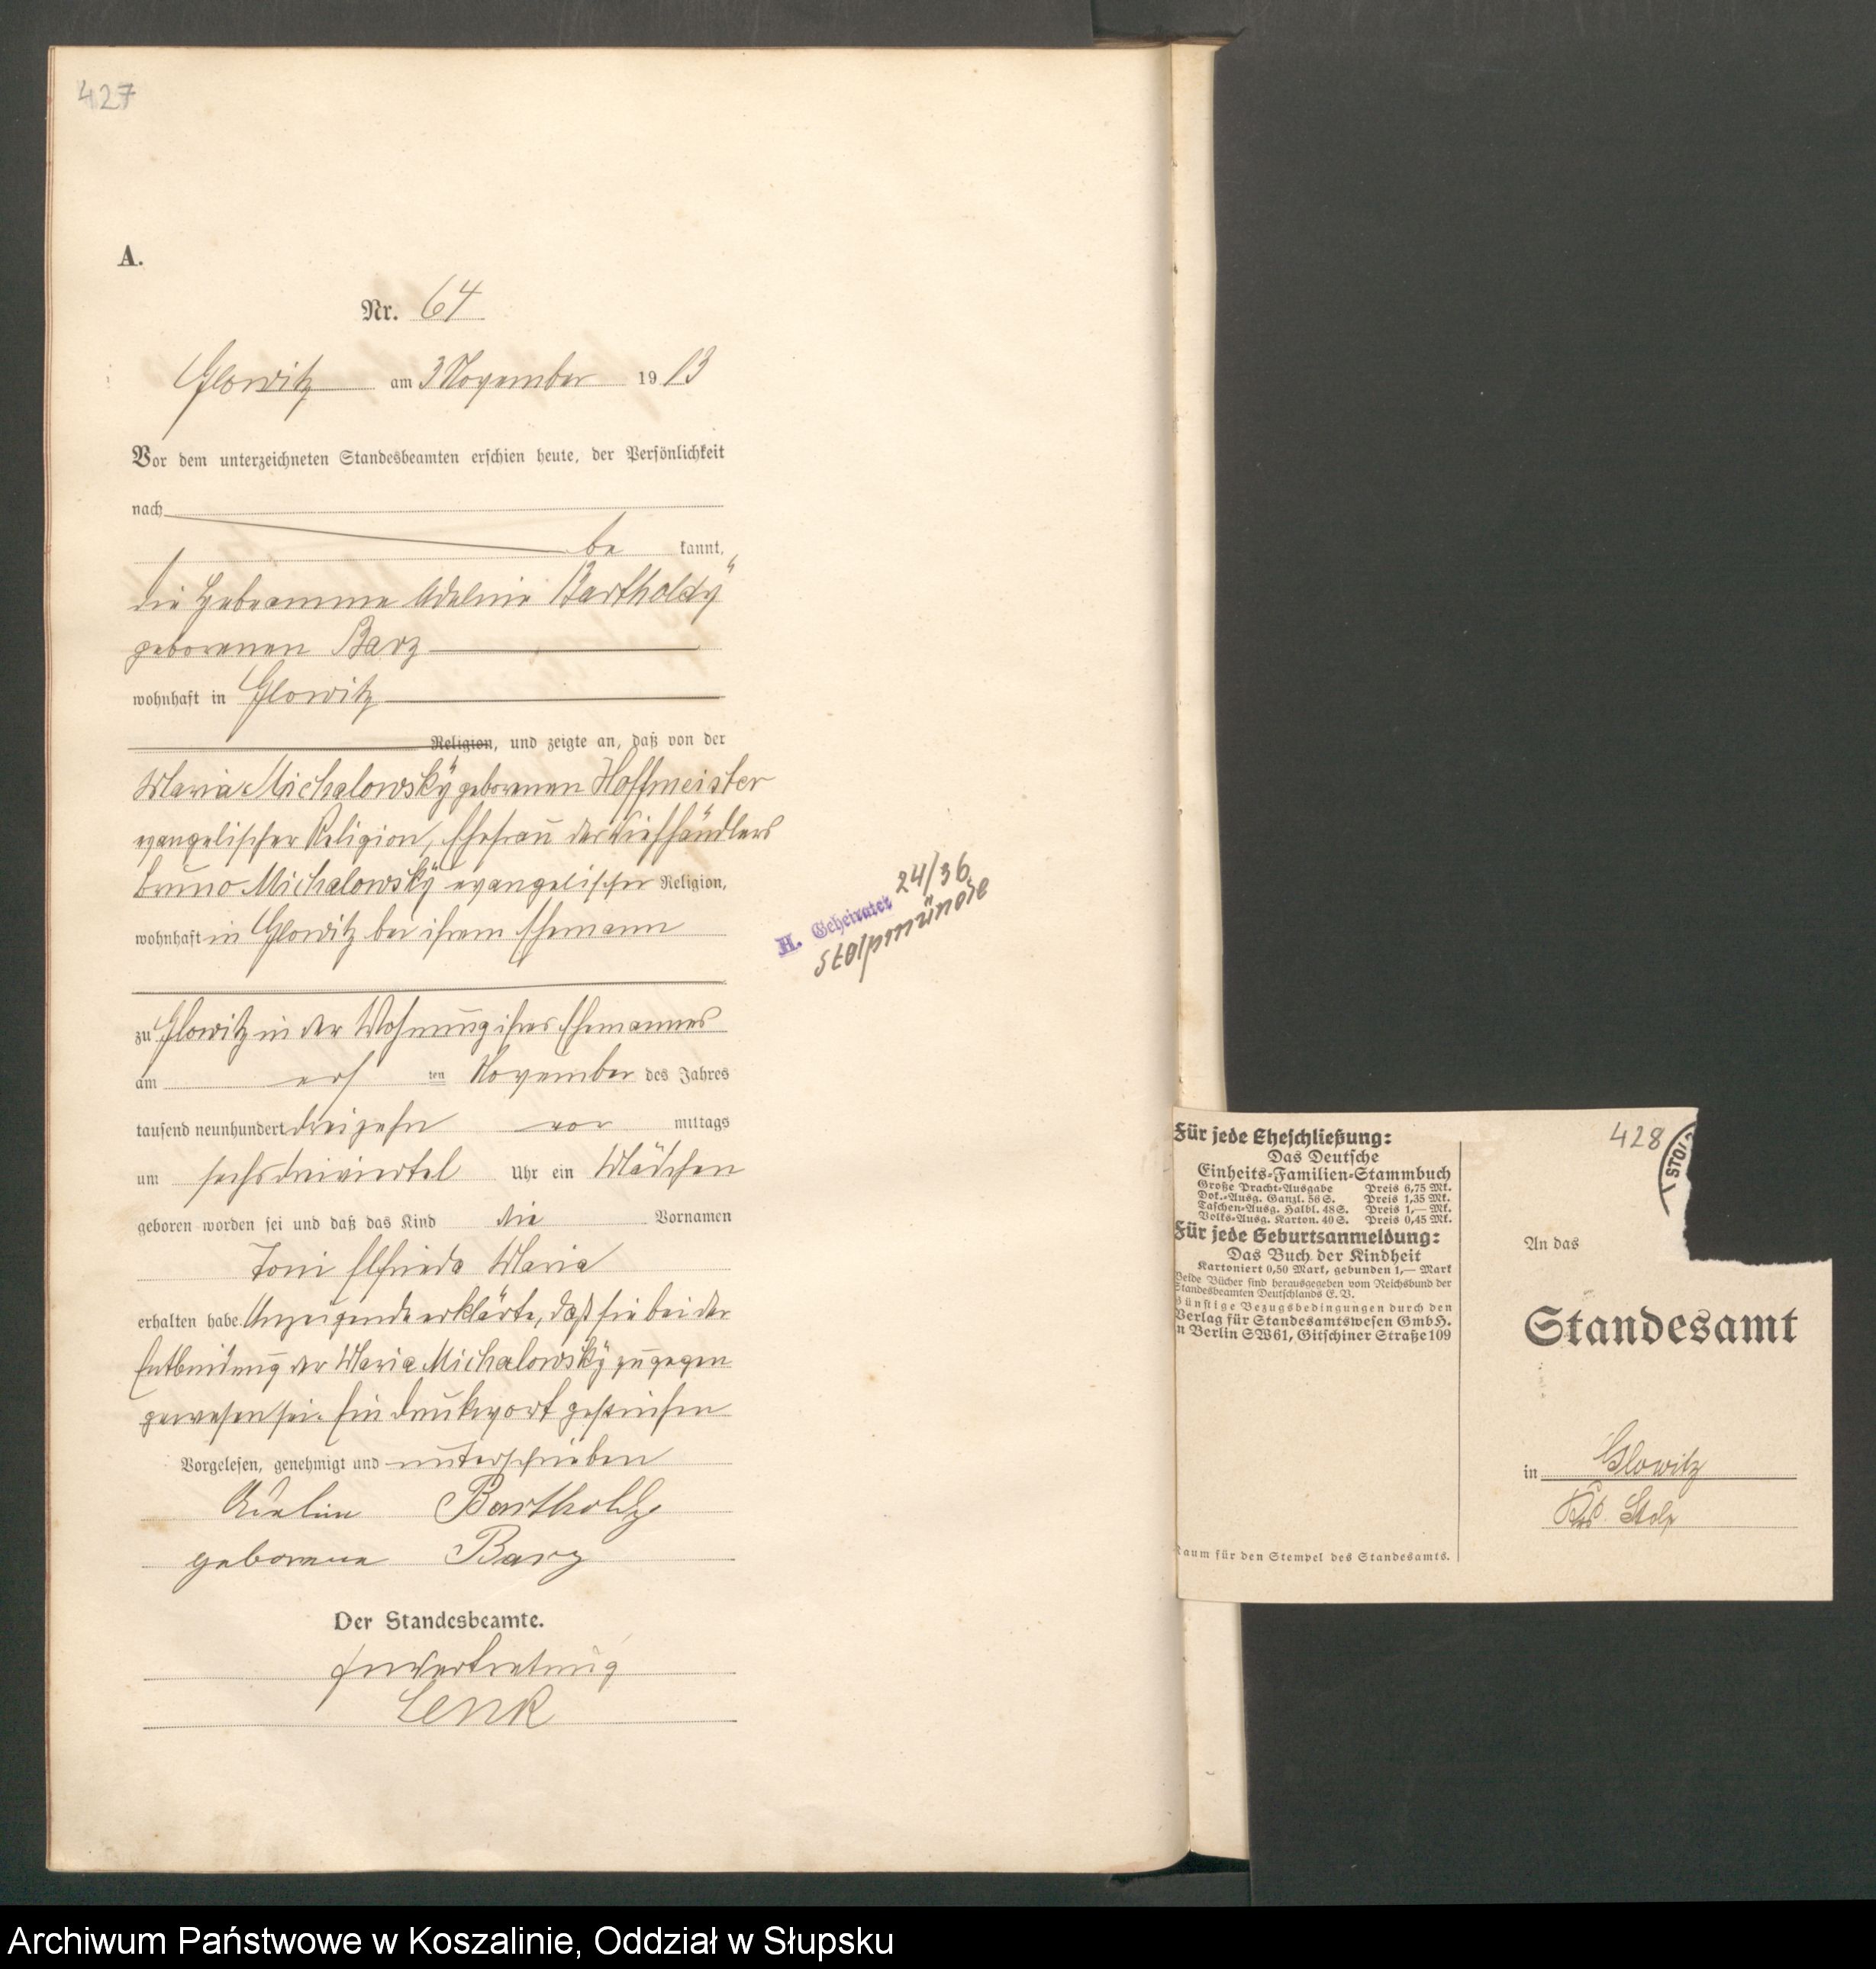 427
A.
Nr. 64
Glowitz am 3 November 1913
Vor dem unterzeichneten Standesbeamten erschien heute, der Persönlichkeit
nach
be kannt,
die Hebeamme Adeline Bartholdÿ
geborenen Barz
wohnhaft in Glowitz
Religion, und zeigte an, daß von der
Maria Michalowskÿ geborenen Hoffmeister
evangelischer Religion, Ehefrau des Viehhändlers
Bruno Michalowskÿ evangelischer Religion,
wohnhaft in Glowitz bei ihrem Ehemann
H. Geheiratet 24/36
Stolpmünde
zu Glowitz in der Wohnung ihres Ehemannes
am ersten November des Jahres
tausend neunhundert dreizehn vor mittags
um sechsdreiviertel Uhr ein Mädchen
geboren worden sei und daß das Kind die Vornamen
Toni Elfrieda Maria
erhalten habe. Anzeigende erklärte, daß sie bei der
Entbindung der Maria Michalowskÿ zugegen
gewesen sei. Ein Druckwort gestrichen
Vorgelesen, genehmigt und unterschrieben
Adeline Bartholdy
geborene Barz
Der Standesbeamte.
In Vertretung
Lenk
Für jede Eheschließung:
Das Deutsche
Einheits-Familien-Stammbuch
Große Pracht-Ausgabe Preis 6,75 Mk.
Dok.-Ausg. Ganzl. 56 S. Preis 1,35 Mk.
Taschen-Ausg. Halbl. 48 S. Preis 1,— Mk.
Volks-Ausg. Karton. 40 S. Preis 0,45 Mk.
Für jede Geburtsanmeldung:
Das Buch der Kindheit
Kartoniert 0,50 Mark, gebunden 1,— Mark
Beide Bücher sind herausgegeben vom Reichsbund der
Standesbeamten Deutschlands E. V.
Günstige Bezugsbedingungen durch den
Verlag für Standesamtswesen GmbH.
in Berlin SW61, Gitschiner Straße 109
Raum für den Stempel des Standesamts.
428
STOL
An das
Standesamt
in Glowitz
Krs. Stolp
Archiwum Państwowe w Koszalinie, Oddział w Słupsku